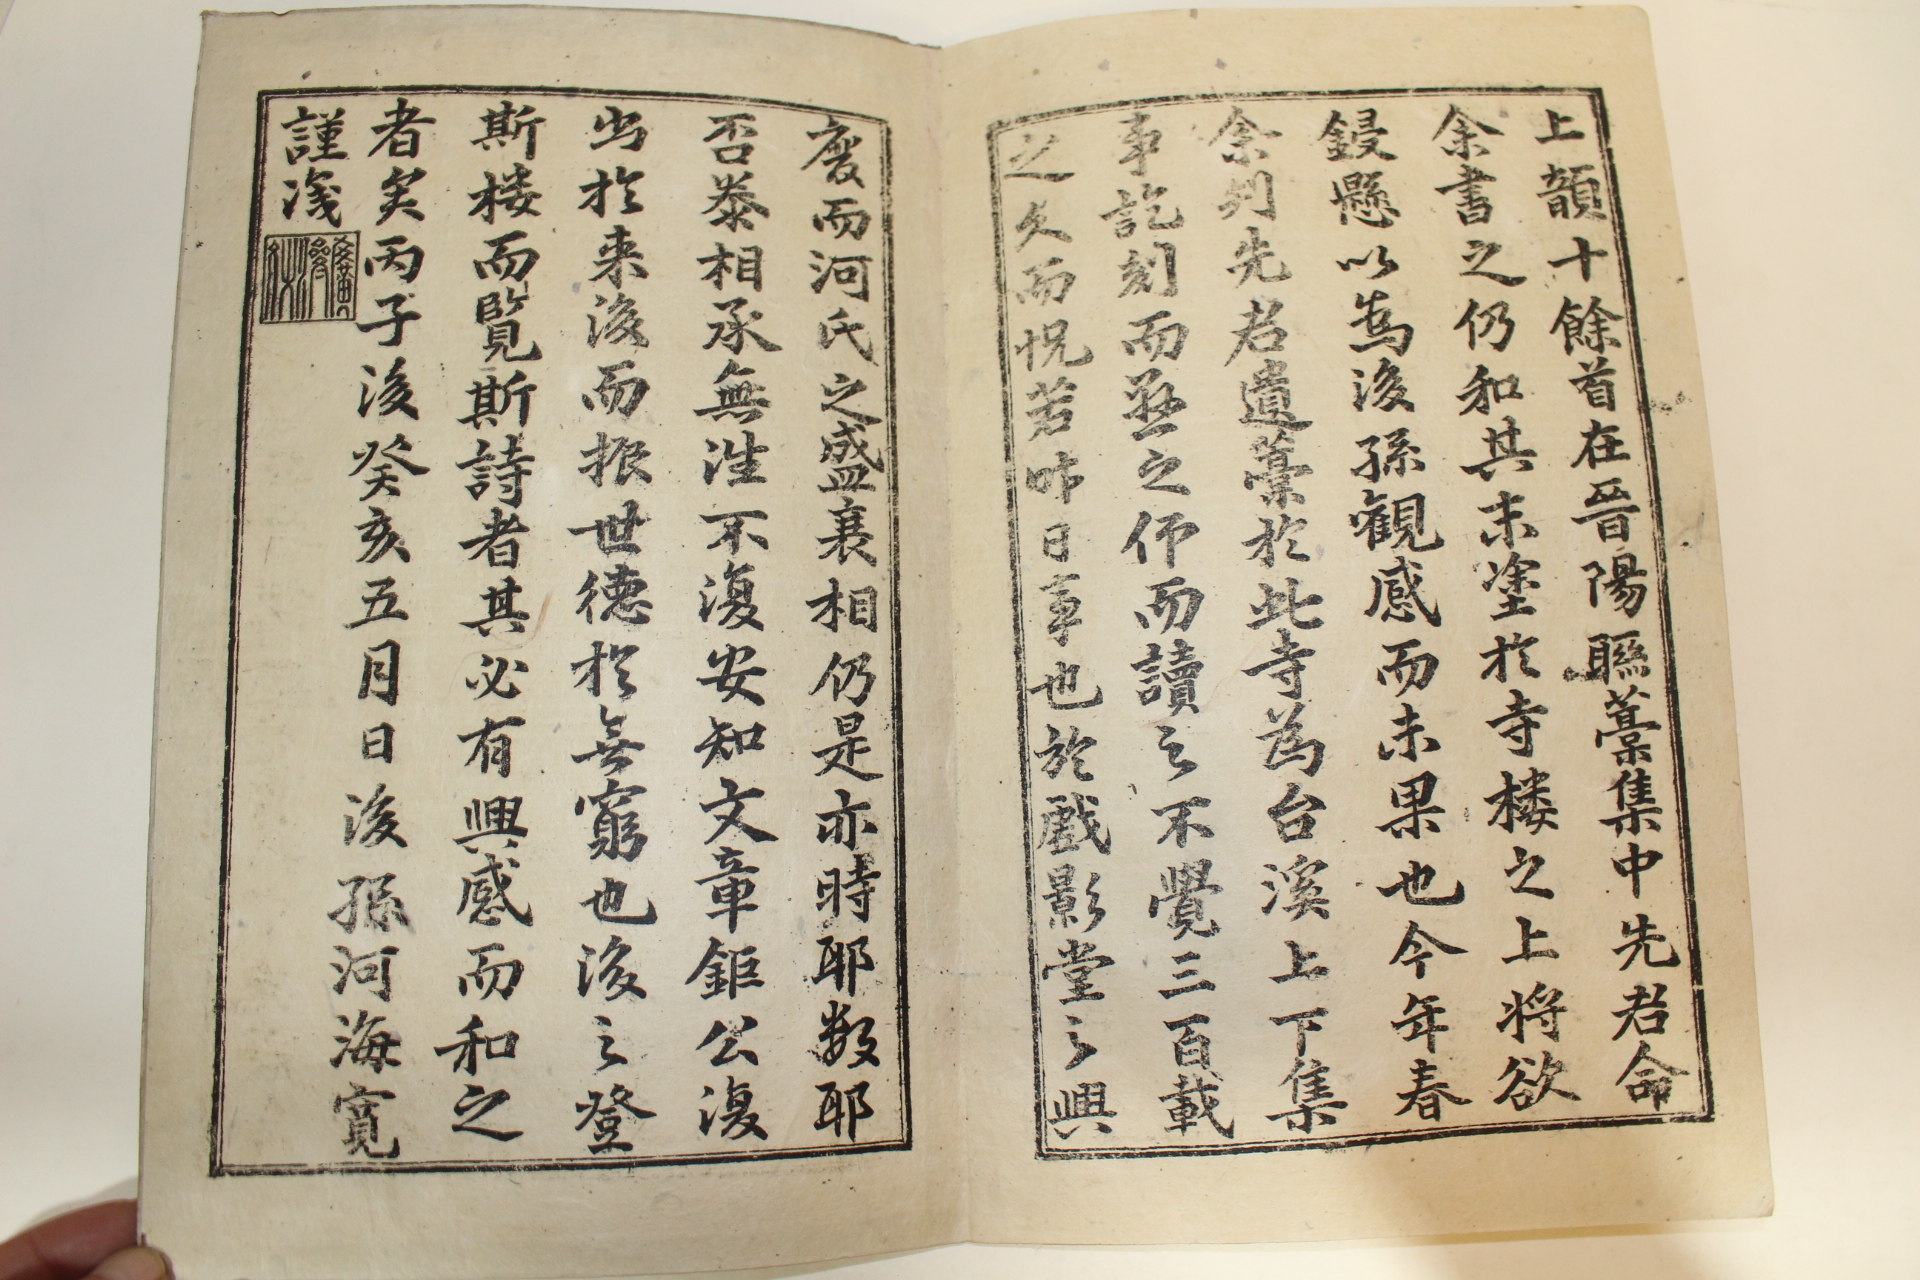 上韻十餘首在晉陽聯藁集中先君命
余書之仍和其末塗於寺楼之上将欲
鋟懸以為後孫觀感而未果也今年春
余刋先君遺藁於此寺為台溪上下集
事訖刻而懸之仰而讀之不覺三百載
之久而怳若昨日事也於戯影堂之興
廢而河氏之盛衰相仍是亦時耶数耶
否泰相承無徃不復安知文章鉅公復
出於来後而振世德於無窮也後之登
斯楼而覧斯詩者其必有興感而和之
者矣丙子後癸亥五月日後孫河海寬
謹識